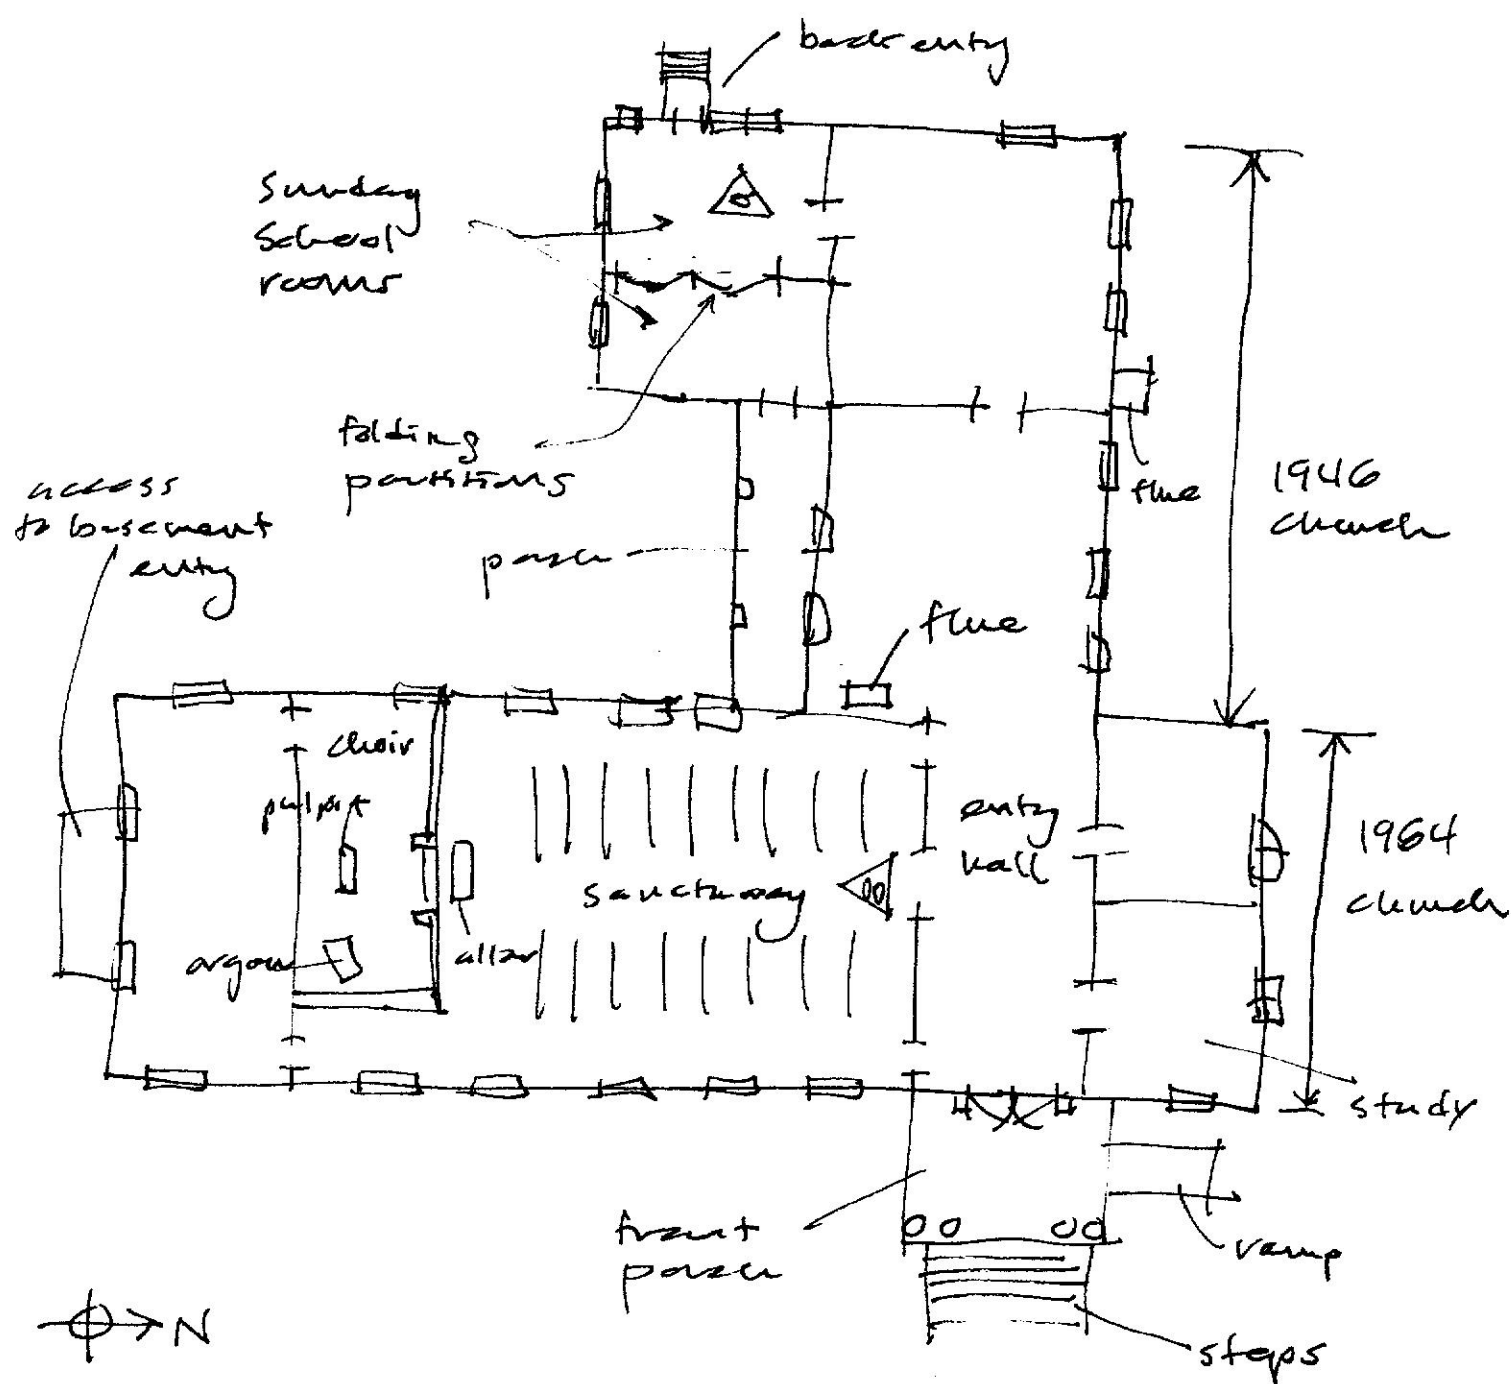 back entry
Sunday
School
rooms
8
folding
partitions
access
to basement
entry
porch
flue
flue
1946
church
choir
pulpit
organ
altar
sanctuary
00
entry
hall
1964
church
study
front
porch
ramp
steps
N